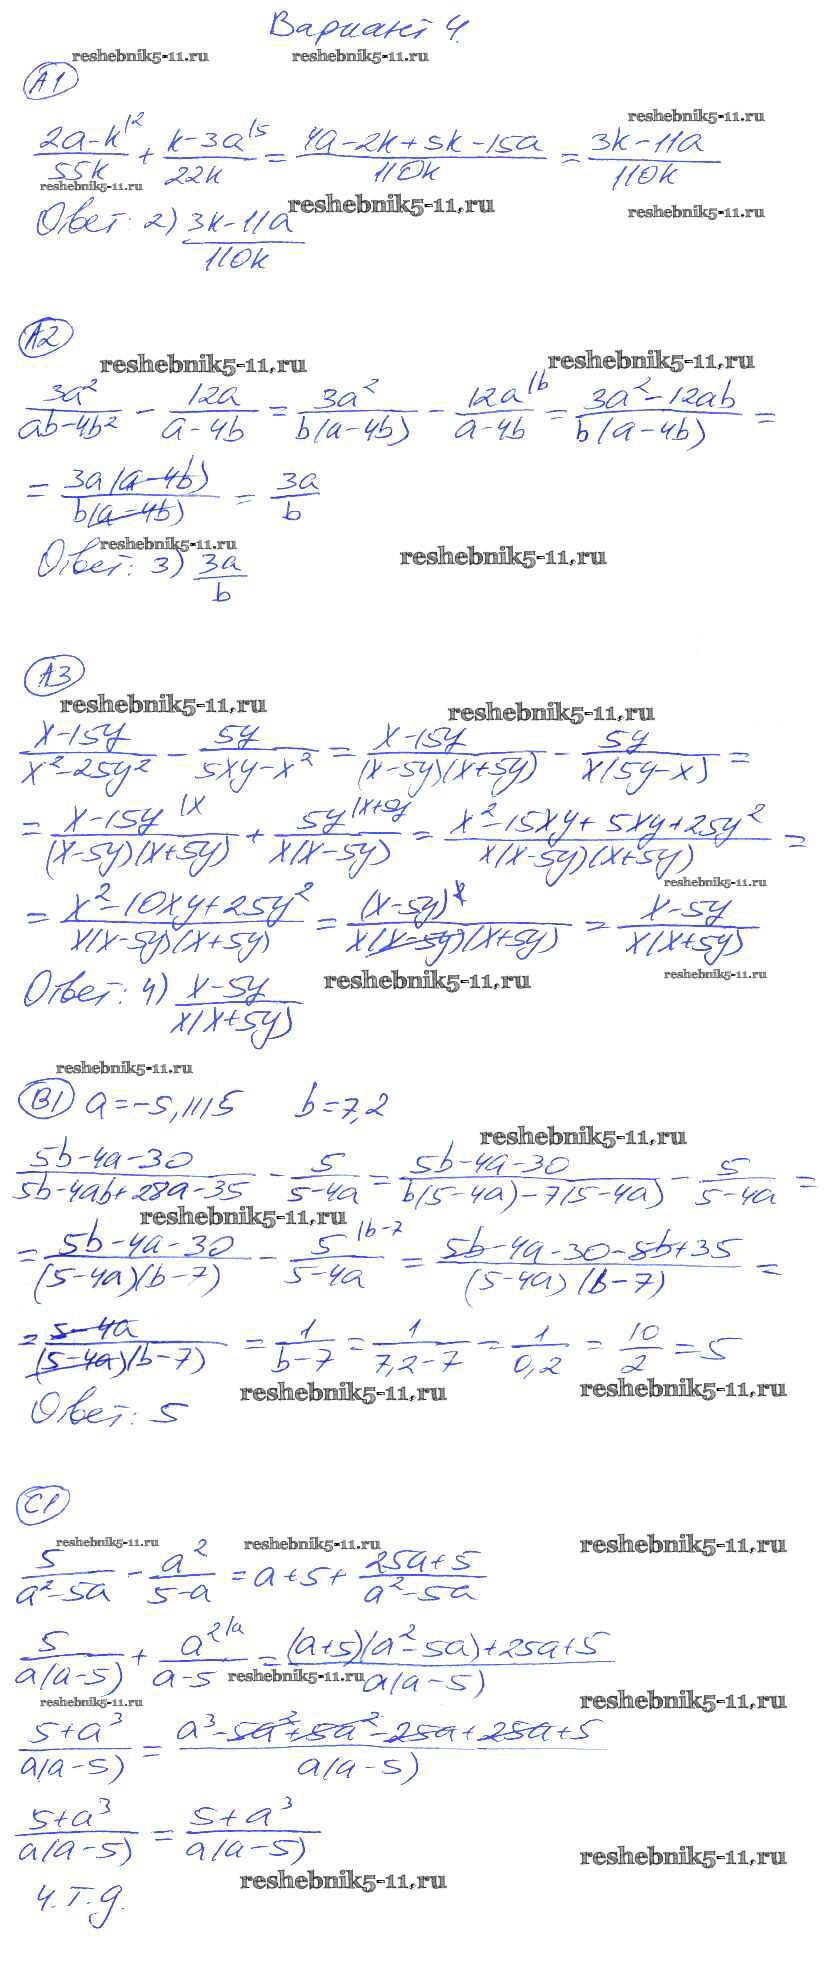 Вариант 4.
reshebnik5-11.ru reshebnik5-11.ru
А1
reshebnik5-11.ru
(2a-k)/(55k) |2 + (k-3a)/(22k) |5 = (4a-2k+5k-15a)/(110k) = (3k-11a)/(110k)
reshebnik5-11.ru
reshebnik5-11.ru reshebnik5-11.ru
Ответ: 2) (3k-11a)/(110k)
А2
reshebnik5-11.ru reshebnik5-11.ru
3a²/(ab-4b²) - 12a/(a-4b) = 3a²/(b(a-4b)) - 12a/(a-4b) |b = (3a²-12ab)/(b(a-4b)) =
= 3a(a-4b)/(b(a-4b)) = 3a/b
reshebnik5-11.ru reshebnik5-11.ru
Ответ: 3) 3a/b
А3
reshebnik5-11.ru reshebnik5-11.ru
(x-15y)/(x²-25y²) - 5y/(5xy-x²) = (x-15y)/((x-5y)(x+5y)) - 5y/(x(5y-x)) =
= (x-15y)/((x-5y)(x+5y)) |x + 5y/(x(x-5y)) |x+5y = (x²-15xy+5xy+25y²)/(x(x-5y)(x+5y)) =
reshebnik5-11.ru
= (x²-10xy+25y²)/(x(x-5y)(x+5y)) = (x-5y)²/(x(x-5y)(x+5y)) = (x-5y)/(x(x+5y))
reshebnik5-11.ru reshebnik5-11.ru
Ответ: 4) (x-5y)/(x(x+5y))
reshebnik5-11.ru
В1 a=-5,1115 b=7,2
reshebnik5-11.ru
(5b-4a-30)/(5b-4ab+28a-35) - 5/(5-4a) = (5b-4a-30)/(b(5-4a)-7(5-4a)) - 5/(5-4a) =
reshebnik5-11.ru
= (5b-4a-30)/((5-4a)(b-7)) - 5/(5-4a) |b-7 = (5b-4a-30-5b+35)/((5-4a)(b-7)) =
= (5-4a)/((5-4a)(b-7)) = 1/(b-7) = 1/(7,2-7) = 1/0,2 = 10/2 = 5
reshebnik5-11.ru reshebnik5-11.ru
Ответ: 5
С1
reshebnik5-11.ru reshebnik5-11.ru reshebnik5-11.ru
5/(a²-5a) - a²/(5-a) = a+5+(25a+5)/(a²-5a)
5/(a(a-5)) + a²/(a-5) |a = ((a+5)(a²-5a)+25a+5)/(a(a-5))
reshebnik5-11.ru
reshebnik5-11.ru reshebnik5-11.ru
(5+a³)/(a(a-5)) = (a³-5a²+5a²-25a+25a+5)/(a(a-5))
(5+a³)/(a(a-5)) = (5+a³)/(a(a-5))
reshebnik5-11.ru reshebnik5-11.ru
ч.т.д.